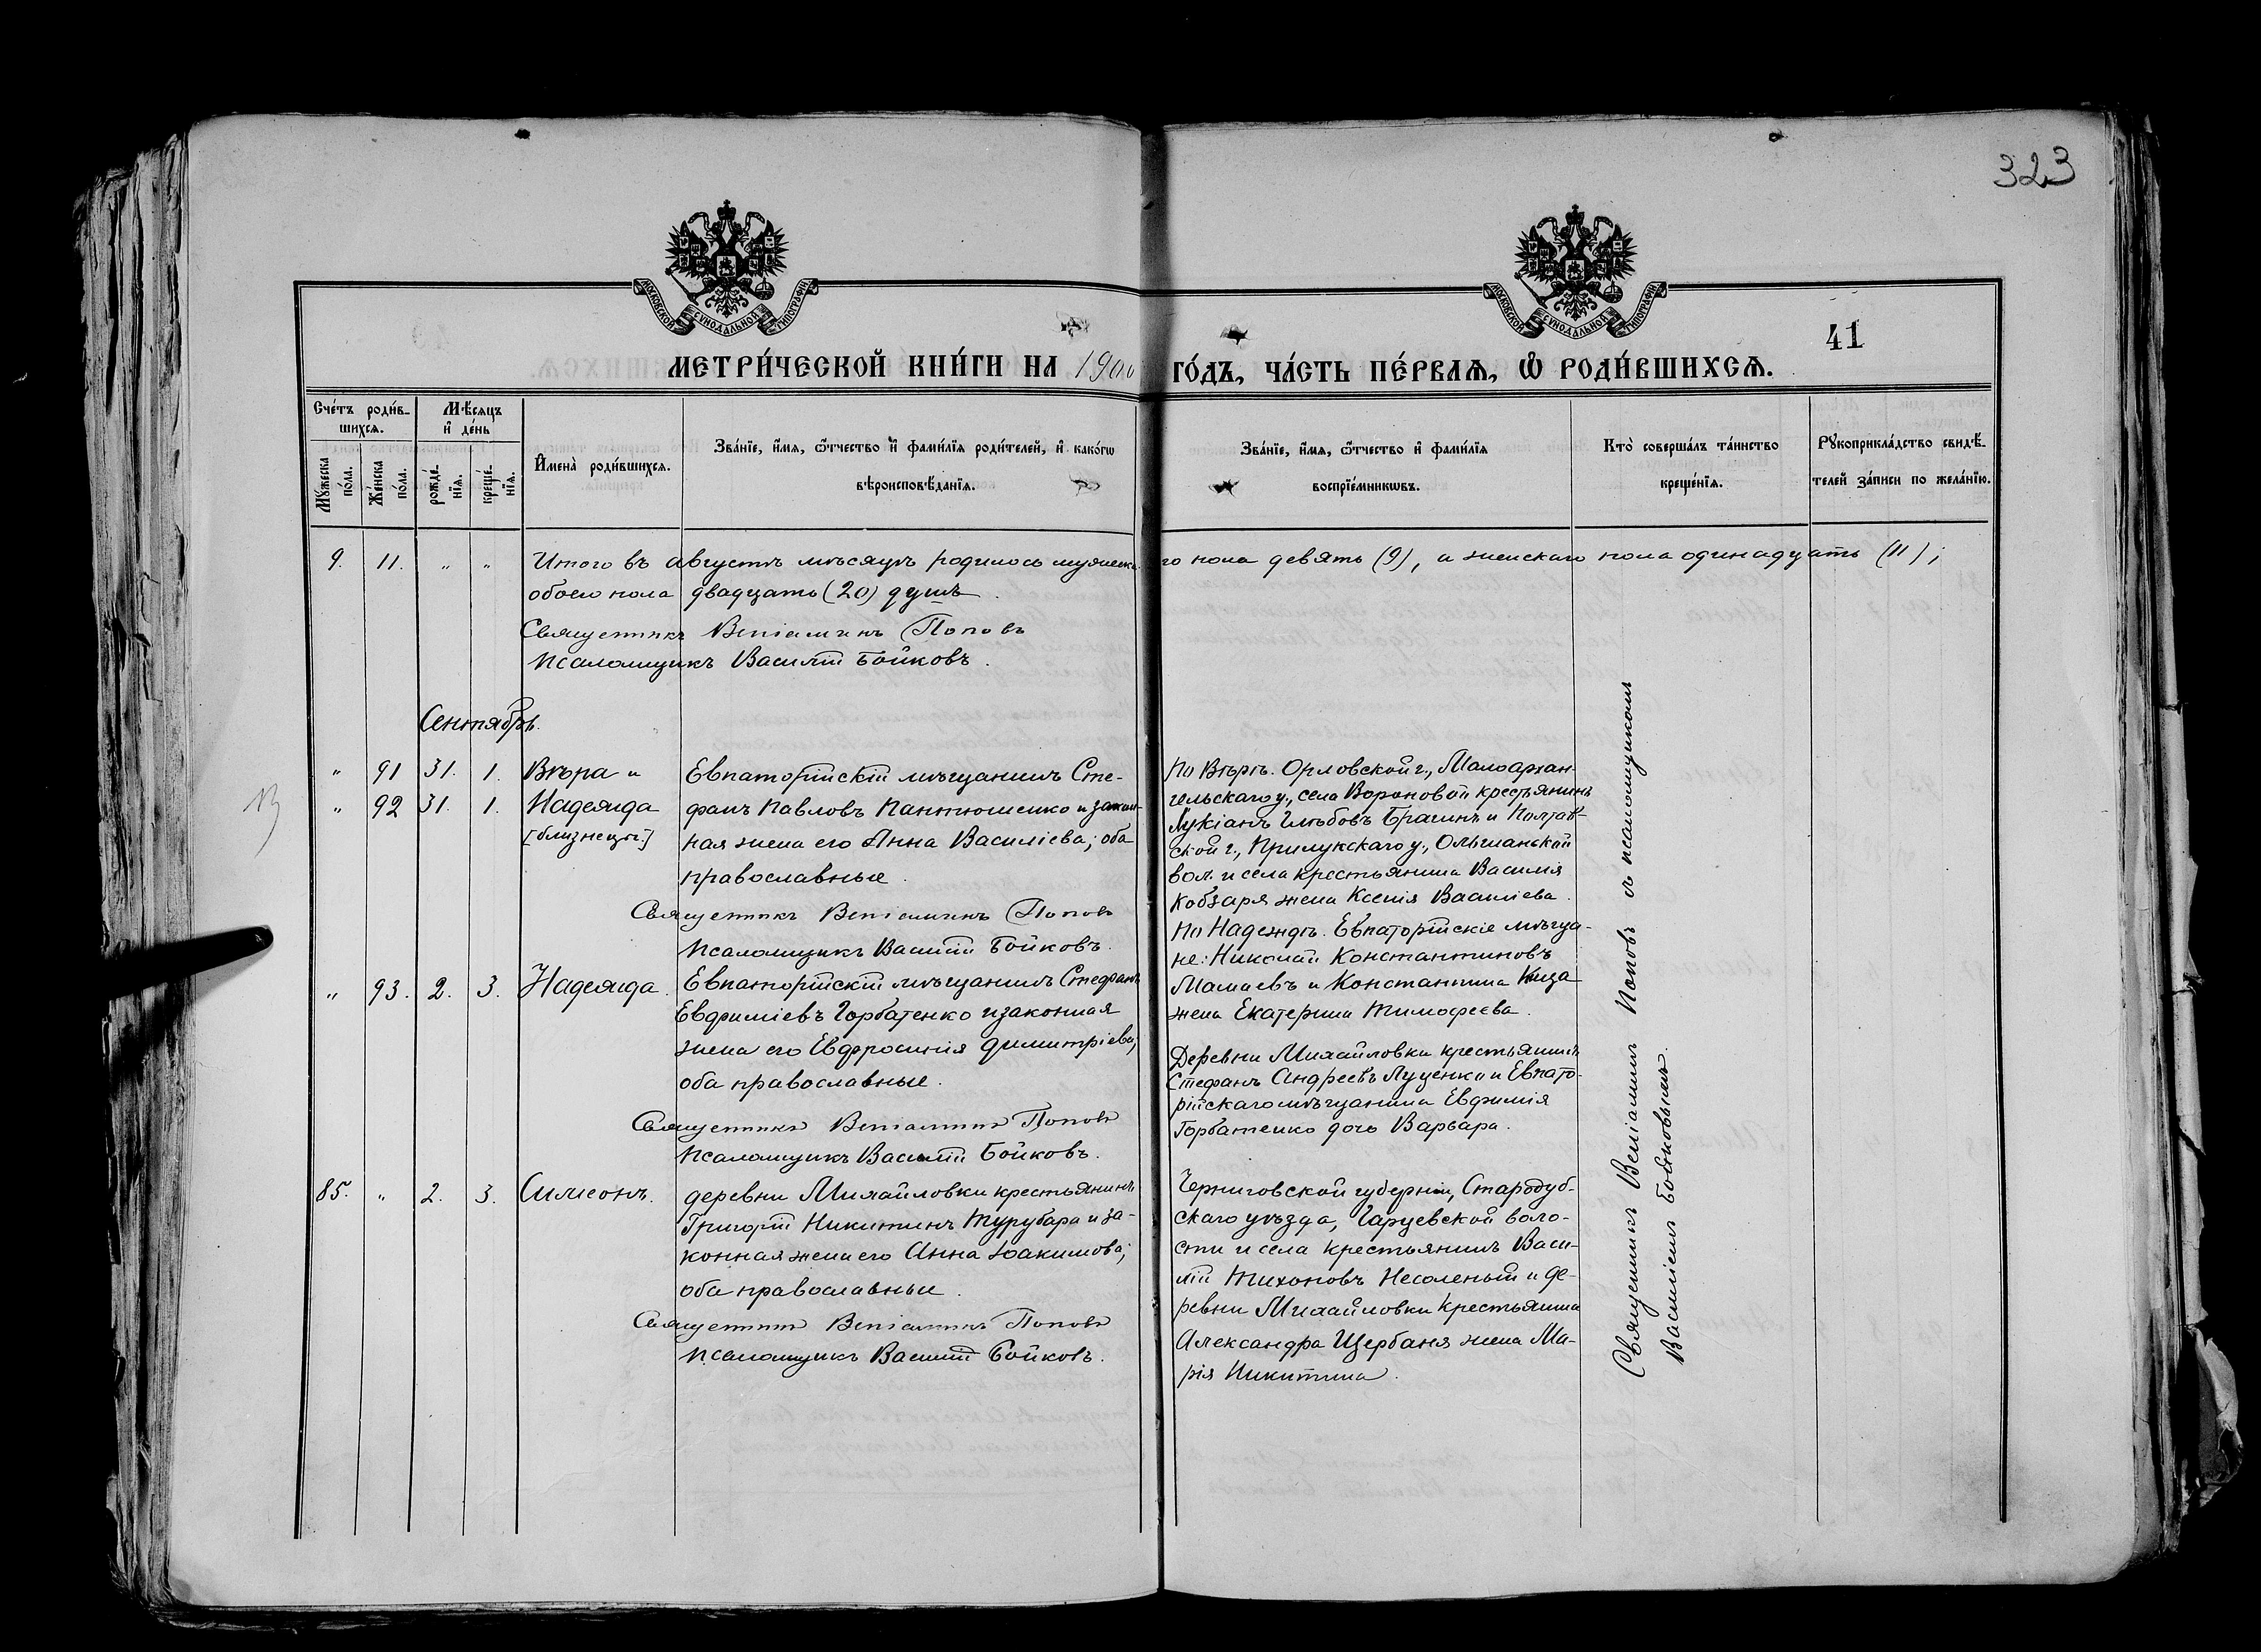 323
МОСКОВСКОЙ СѴНОДАЛЬНОЙ ТИПОГРАФІИ
МОСКОВСКОЙ СѴНОДАЛЬНОЙ ТИПОГРАФІИ
41
МЕТРИ́ЧЕСКОЙ КНИ́ГИ НА 1900 ГО́ДЪ, ЧА́СТЬ ПЕ́РВАѦ, Ѡ҆ РОДИ́ВШИХСѦ.
Сче́тъ роди́в-
шихсѧ.
Мꙋ́жеска по́ла.
Же́нска по́ла.
Мѣ́сѧцъ
и҆ де́нь
рожде́-
нїѧ.
креще́-
нїѧ.
И҆мена̀ роди́вшихсѧ.
Зва́нїе, и҆́мѧ, ѻ҆́тчество и҆ фами́лїѧ роди́телей, и҆ како́гѡ
вѣроисповѣ́данїѧ.
Зва́нїе, и҆́мѧ, ѻ҆́тчество и҆ фами́лїѧ
воспрїе́мникѡвъ.
Кто̀ соверша́лъ та́инство
креще́нїѧ.
Рꙋкоприкла́дство свидѣ́-
телей за́писи по жела́нїю.
9. 11. " " Итого въ августѣ мѣсяцѣ родилось мужеска-го пола девять (9), а женскаго пола одинадцать (11);
обоего пола двадцать (20) душъ.
Священникъ Веніаминъ Поповъ
Псаломщикъ Василій Бойковъ.
Сентябрь.
" 91 31. 1. Вѣра и
" 92 31. 1. Надежда
[близнецы]
Евпаторійскій мѣщанинъ Сте-
фанъ Павловъ Пантюшенко и закон-
ная жена его Анна Василіева; оба
православные.
Священникъ Веніаминъ Поповъ
Псаломщикъ Василій Бойковъ.
По Вѣрѣ. Орловской г., Малоархан-
гельскаго у., села Вороновой крестьянинъ
Лукіанъ Глѣбовъ Брагинъ и Полтав-
ской г., Прилукскаго у., Ольшанской
вол. и села крестьянина Василія
Кобзаря жена Ксенія Василіева.
По Надеждѣ. Евпаторійскіе мѣща-
не: Николай Константиновъ
Мамаевъ и Константина
жена Екатерина Тимофеева.
" 93. 2. 3. Надежда.
Евпаторійскій мѣщанинъ Стефанъ
Евфиміевъ Горбатенко и законная
жена его Евфросинія Димитріева;
оба православные.
Священникъ Веніаминъ Поповъ
Псаломщикъ Василій Бойковъ.
Деревни Михайловки крестьянинъ
Стефанъ Андреевъ Луценко и Евпато-
рійскаго мѣщанина Евфимія
Горбатенко дочь Варвара.
85. " 2. 3. Симеонъ.
деревни Михайловки крестьянинъ
Григорій Никитинъ Турубара и за-
конная жена его Анна Іоакимова;
оба православные.
Священникъ Веніаминъ Поповъ
Псаломщикъ Василій Бойковъ.
Черниговской губерніи, Стародуб-
скаго уѣзда, Гарцевской воло-
сти и села крестьянинъ Васи-
лій Тихоновъ Несоленый и де-
ревни Михайловки крестьянина
Александра Щербаня жена Ма-
рія Никитина.
Священникъ Веніаминъ Поповъ съ псаломщикомъ
Василіемъ Бойковымъ.